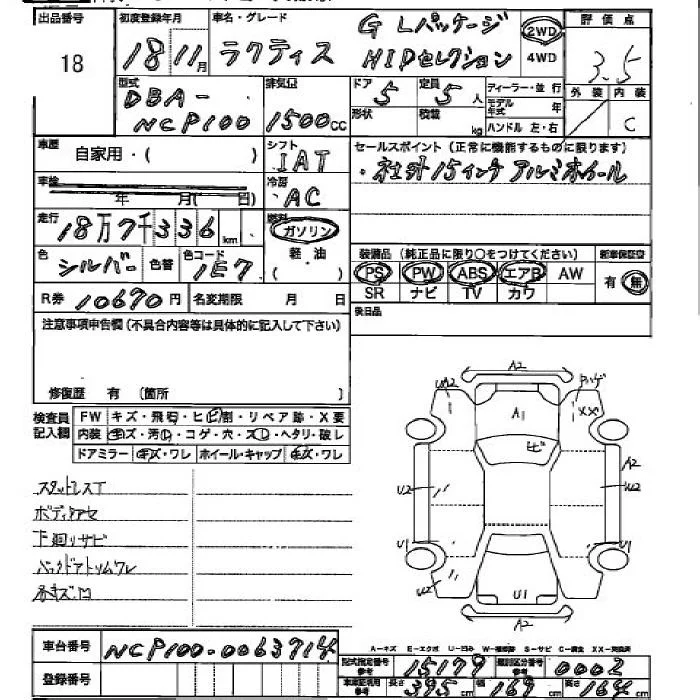 出品番号 初度登録年月 車名・グレード 評価点
18 18 11月 ラクティス GLパッケージ HIDセレクション 2WD 4WD 3.5
型式 DBA-NCP100 排気量 1500cc ドア 5 定員 5人 ディーラー・並行 外装 内装
形状 積載 kg モデル年式 年 ハンドル 左・右 C
車歴 自家用・( ) シフト IAT セールスポイント(正常に機能するものに限ります)
車検 年 月( 日) 冷房 AC ・社外15インチアルミホイール
走行 18万7千336km 燃料 ガソリン 軽・油 ( )
色 シルバー 色替 色コード 1E7
装備品(純正品に限り○をつけてください) 新車保証書
PS PW ABS エアB AW 有・無
SR ナビ TV カワ
R券 10670円 名変期限 月 日 後日品
注意事項申告欄(不具合内容等は具体的に記入して下さい)
修復歴 有 〔箇所 〕
検査員記入欄
FW キズ・飛石・ヒビ割・リペア跡・X要
内装 キズ・汚レ・コゲ・穴・スレ・ヘタリ・破レ
ドアミラー キズ・ワレ ホイール・キャップ キズ・ワレ
スタッドレスT
ボディアセ
下廻りサビ
バックドアトリムワレ
A2
A1
XX
ヒビ
A2
U2
U1
U1
U1
A2
A-キズ E-エクボ U-凹み W-補修跡 S-サビ C-腐食 XX-交換済
車台番号 NCP100-0063714
登録番号
型式指定番号 参考 15179 類別区分番号 参考 0002
長さ 395cm 幅 169cm 高さ 164cm